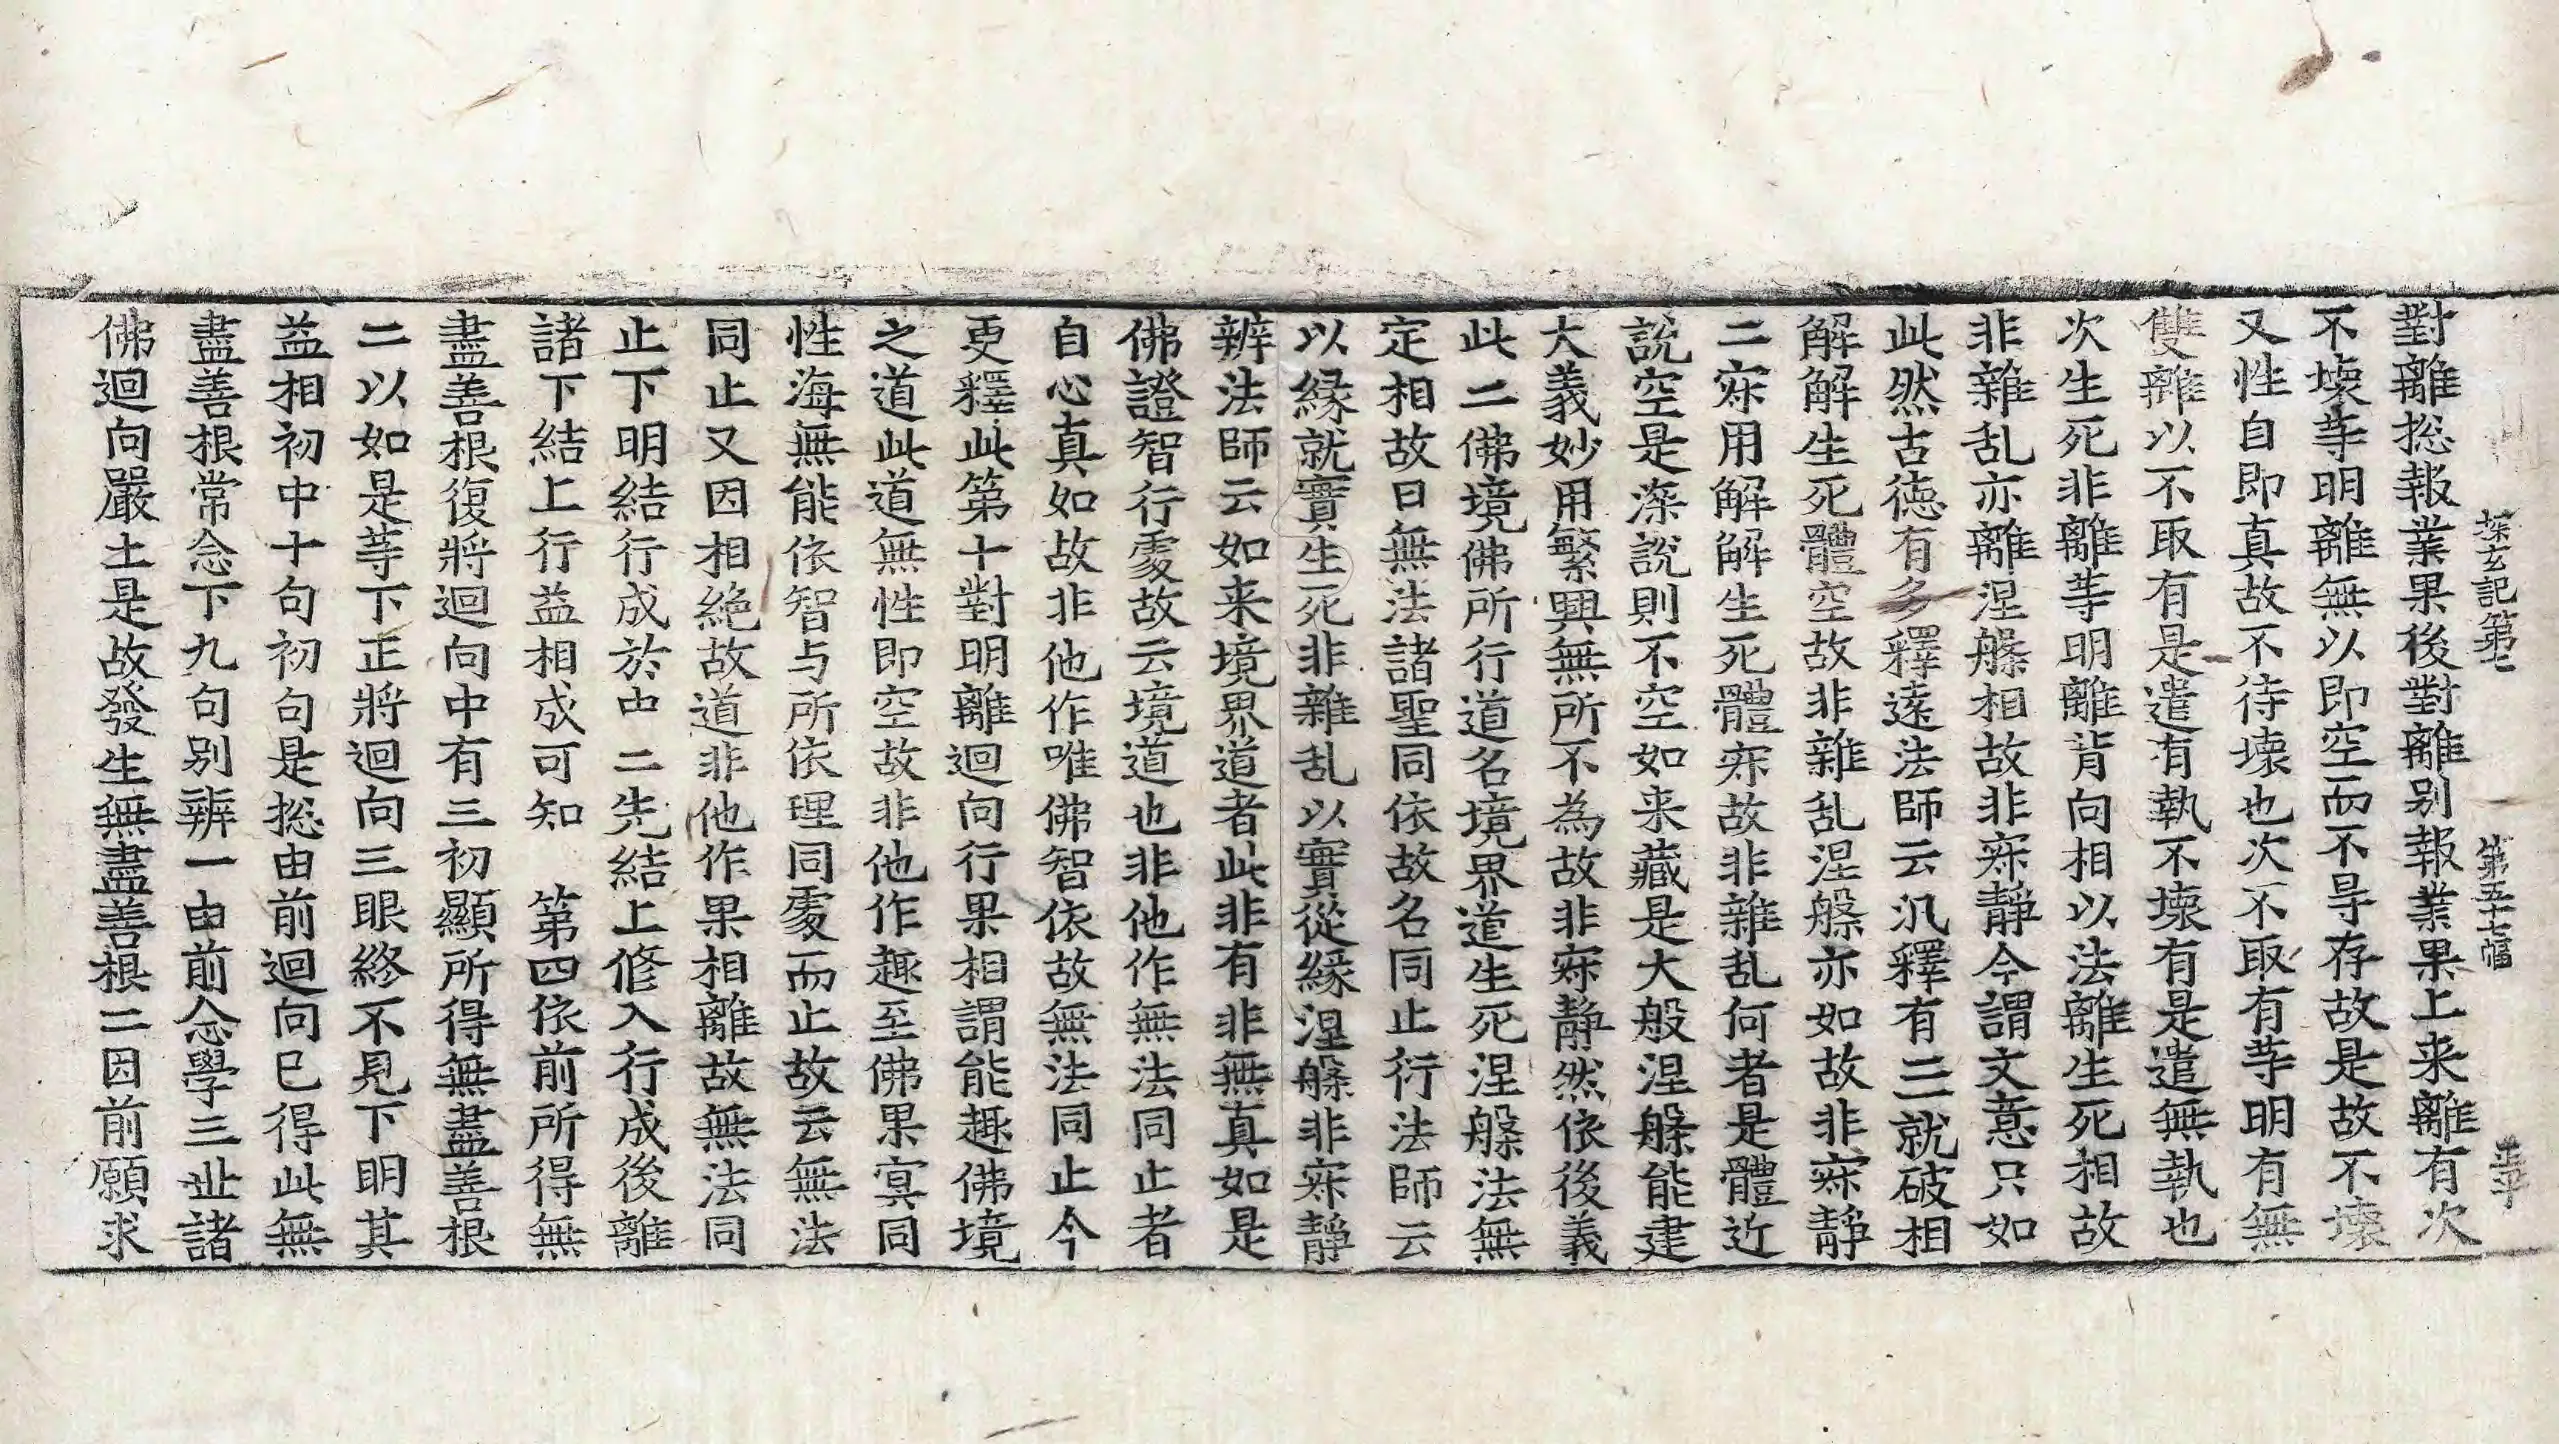 探玄記第七 第五十七幅
對離捴報業果後對離别報業果上来離有次
不壞等明離無以即空而不㝵存故是故不壞
又性自即真故不待壞也次不取有等明有無
雙離以不取有是遣有執不壞有是遣無執也
次生死非離等明離背向相以法離生死相故
非雜乱亦離涅槃相故非寂静今謂文意只如
此然古德有多釋遠法師云汎釋有三一就破相
解解生死體空故非雜乱涅槃亦如故非寂静
二寂用解解生死體寂故非雜乱何者是體近
說空是深說則不空如来藏是大般涅槃能建
大義妙用繁興無所不為故非寂静然依後義
此二佛境佛所行道名境界道生死涅槃法無
定相故曰無法諸聖同依故名同止衍法師云
以緣就實生死非雜乱以實從緣涅槃非寂静
辨法師云如来境界道者此非有非無真如是
佛證智行處故云境道也非他作無法同止者
自心真如故非他作唯佛智依故無法同止今
更釋此第十對明離迴向行果相謂能趣佛境
之道此道無性即空故非他作趣至佛果㝠同
性海無能依智与所依理同處而止故云無法
同止又因相絶故道非他作果相離故無法同
止下明結行成於中二先結上修入行成後離
諸下結上行益相成可知 第四依前所得無
盡善根復將迴向中有三初顯所得無盡善根
二以如是等下正將迴向三眼終不見下明其
益相初中十句初句是捴由前迴向已得此無
盡善根常念下九句别辨一由前念學三世諸
佛迴向嚴土是故發生無盡善根二因前願求